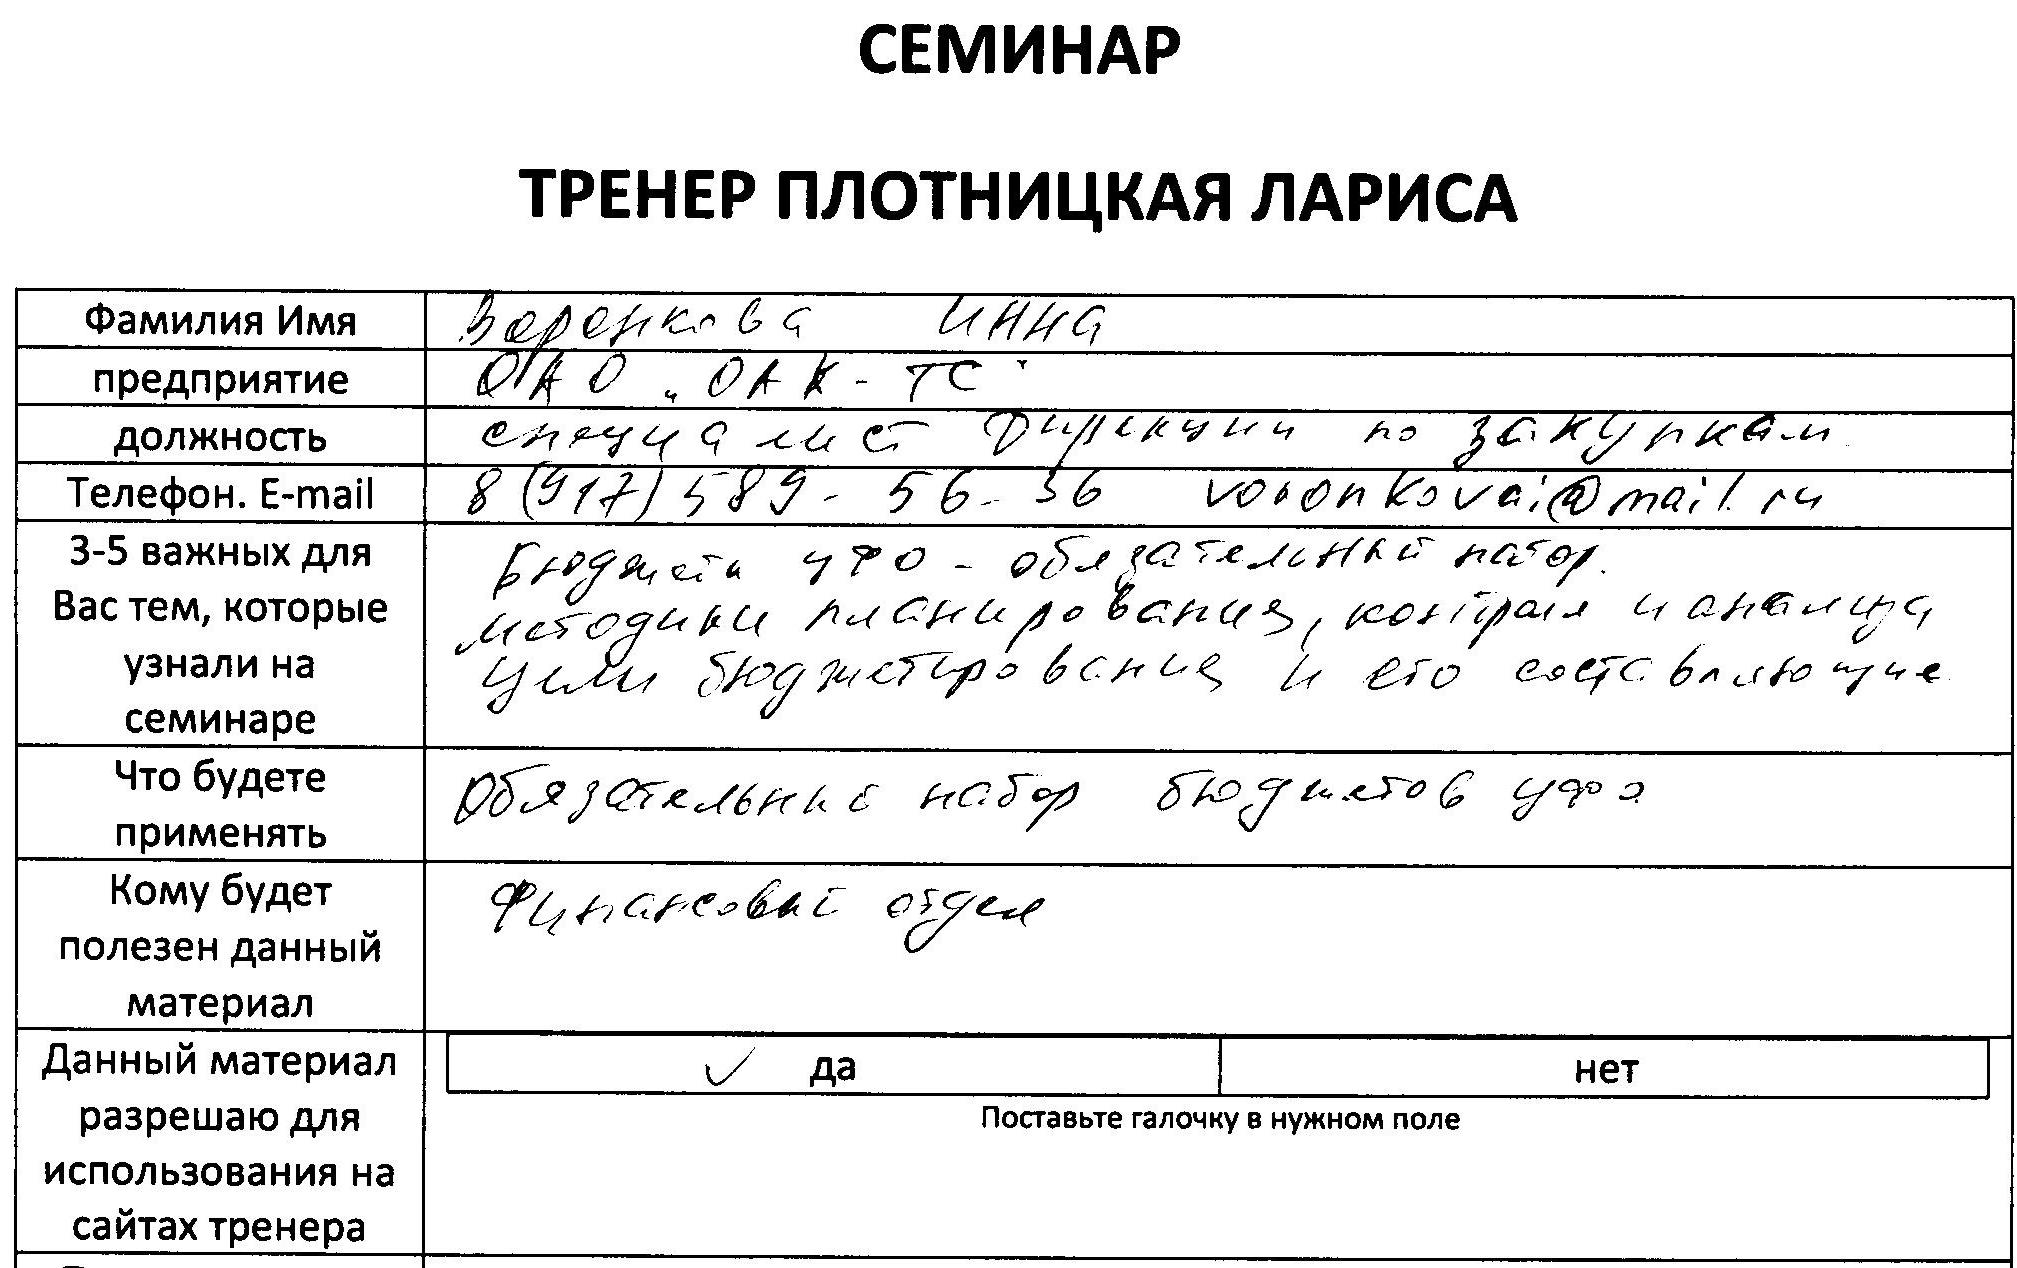 СЕМИНАР
ТРЕНЕР ПЛОТНИЦКАЯ ЛАРИСА
Фамилия Имя
Воронкова Инна
предприятие
ОАО „ОАК-ТС"
должность
специалист Дирекции по закупкам
Телефон. E-mail
8(917)589-56-36 voronkovai@mail.ru
3-5 важных для
Вас тем, которые
узнали на
семинаре
Бюджеты ЦФО - обязательный набор.
методики планирования, контроля и анализа
Цели бюджетирования и его составляющие
Что будете
применять
Обязательный набор бюджетов ЦФО
Кому будет
полезен данный
материал
Финансовый отдел
Данный материал
разрешаю для
использования на
сайтах тренера
✓ да
нет
Поставьте галочку в нужном поле